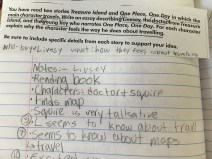 You have read two stories Treasure Island and One Place, One Day in which the
main character travels. Write an essay describing Livesey, the doctor from Treasure
Island, and the young boy who narrates One Place, One Day. For each character
explain why the character feels the way he does about travelling.
Be sure to include specific details from each story to support your idea.
who-boy+Livesy what: how they feel about
Notes:- Livsey
-Reading book
-Characters: doctor + squire
-Finds map
-Squire is very talkative
- seems to know about
- Seems to know about maps
+ travel